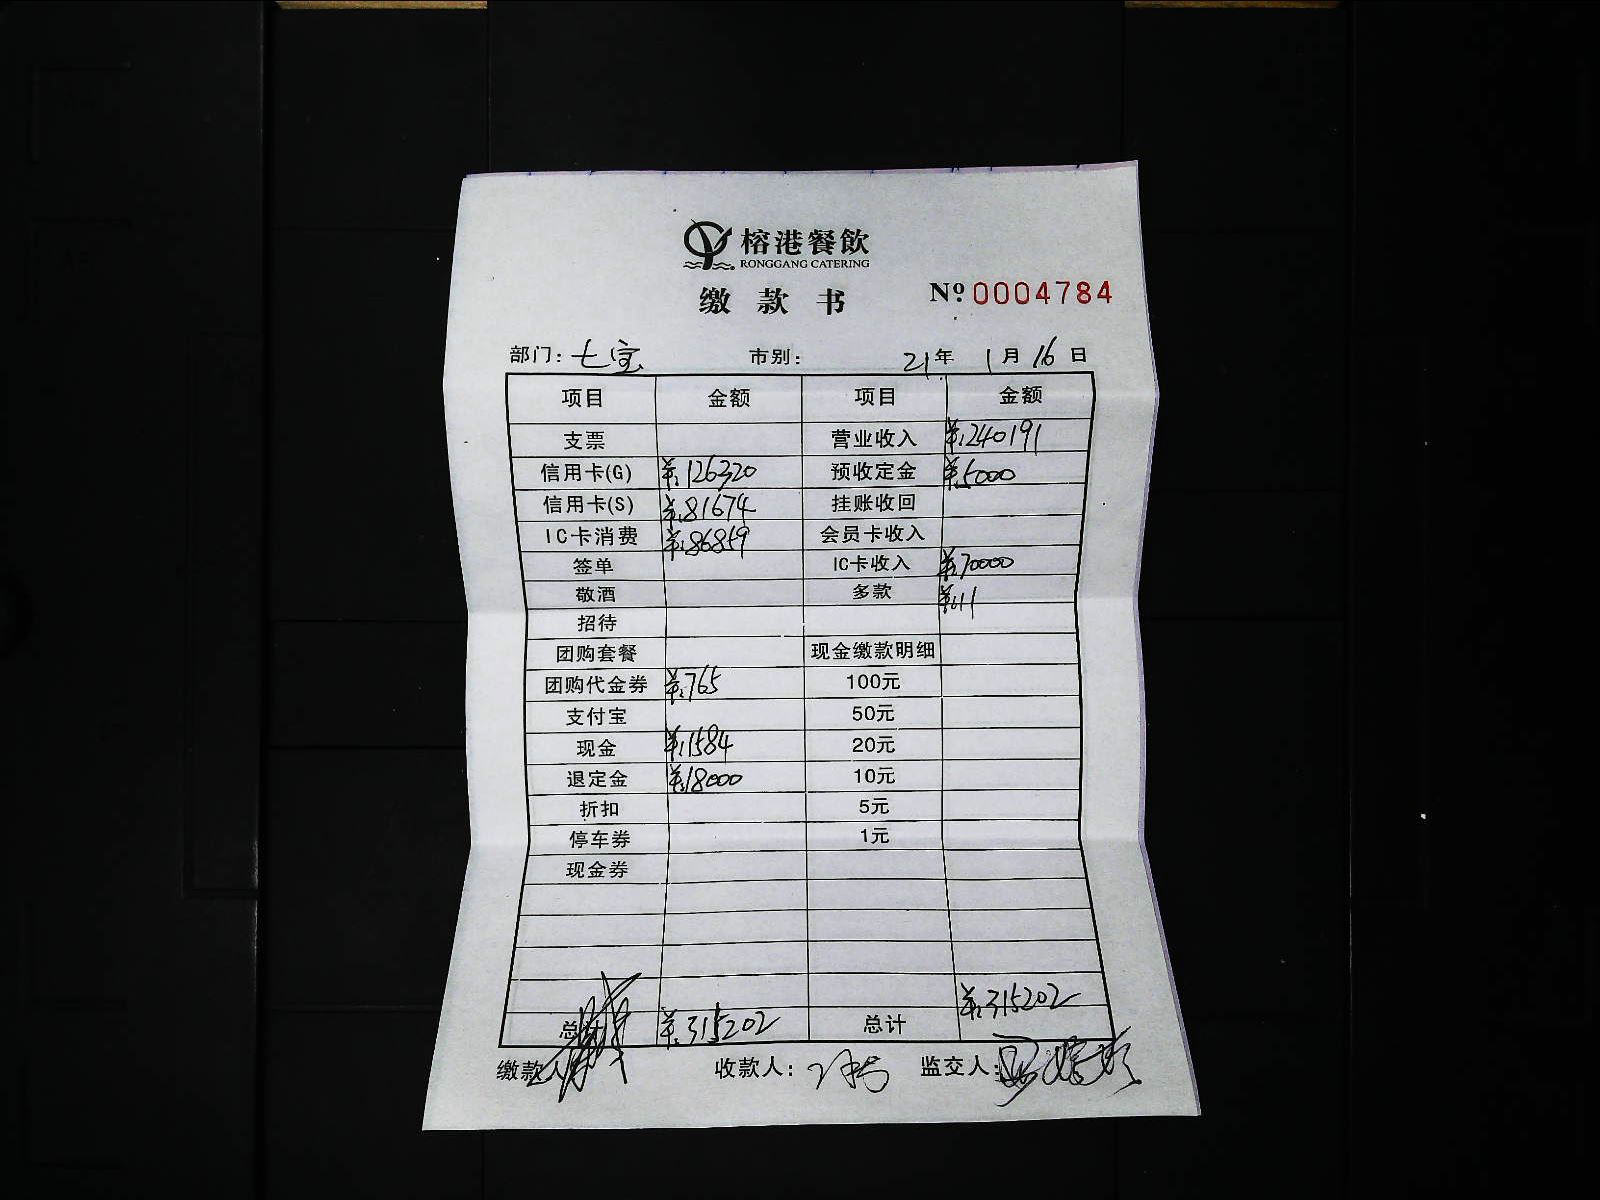 榕港餐飲
RONGGANG CATERING
缴款书 Nº 0004784
部门：七宝 市别： 21年 1月16日
项目 金额 项目 金额
支票 营业收入 ¥:240191
信用卡(G) ¥:126320 预收定金 ¥:5000
信用卡(S) ¥:81674 挂账收回
IC卡消费 ¥:86859 会员卡收入
签单 IC卡收入 ¥:70000
敬酒 多款 ¥:11
招待
团购套餐 现金缴款明细
团购代金券 ¥:765 100元
支付宝 50元
现金 ¥:1584 20元
退定金 ¥:18000 10元
折扣 5元
停车券 1元
现金券
总计 ¥:315202 总计 ¥:315202
缴款人 收款人： 监交人：